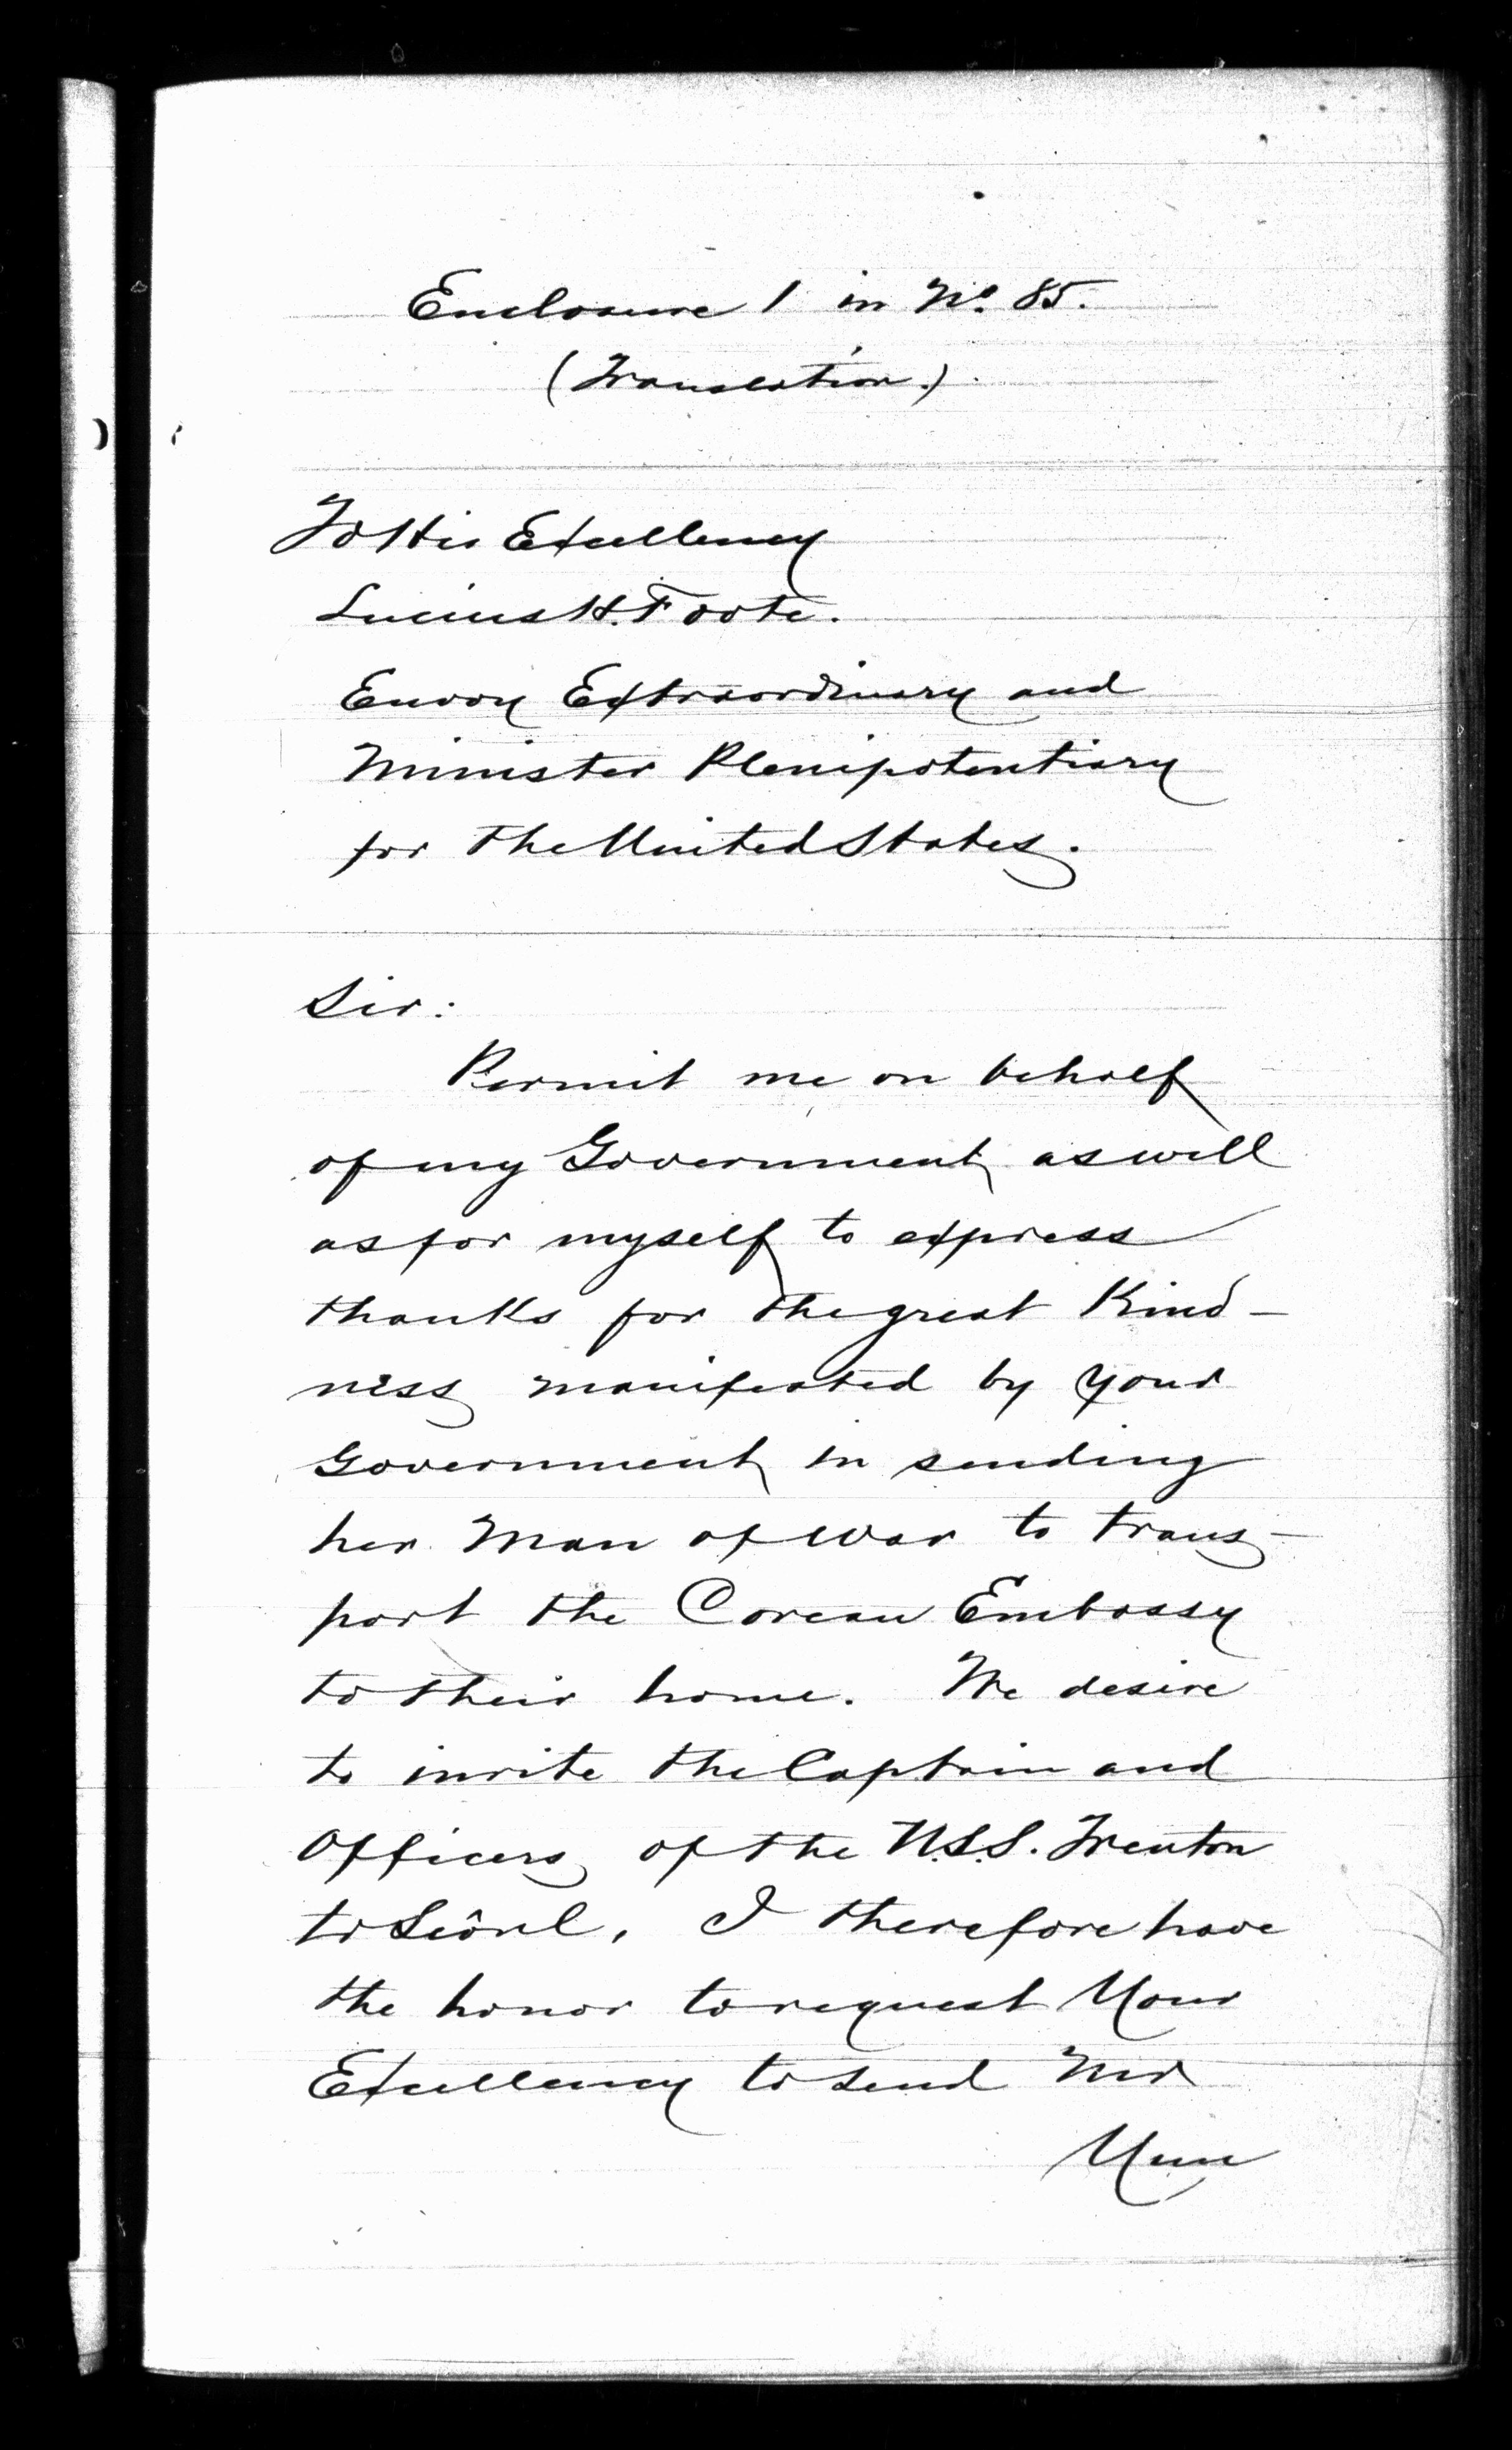 Enclosure 1 in No. 85.
(Translation.)
To His Excellency
Lucius H. Foote.
Envoy Extraordinary and
Minister Plenipotentiary
for the United States.
Sir:
Permit me on behalf
of my Government as well
as for myself to express
thanks for the great Kind-
ness manifested by your
Government in sending
her Man of war to trans-
port the Corean Embassy
to their home. We desire
to invite the Captain and
Officers of the U.S.S. Trenton
to Seôul, I therefore have
the honor to request Your
Excellency to send Mr
Yun